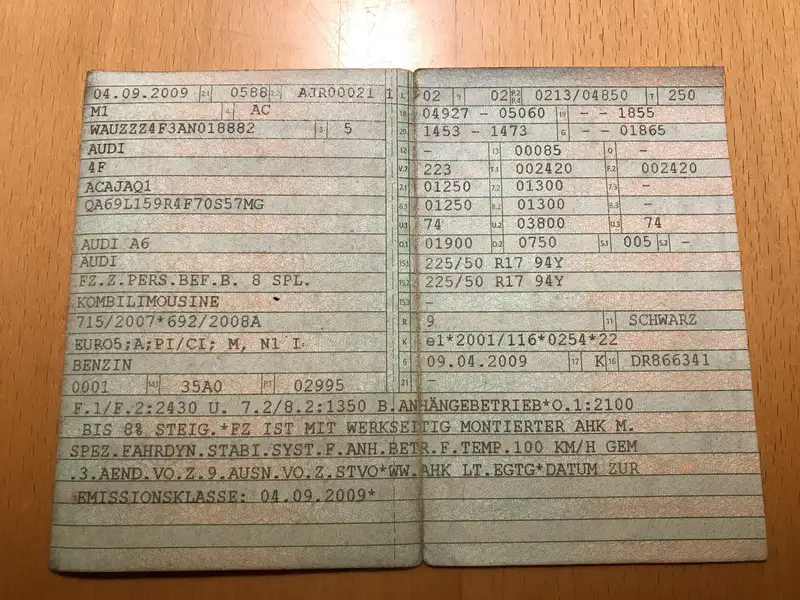 04.09.2009 2.1 0588 2.2 AJR00021 1
M1 4 AC
WAUZZZ4F3AN018882 3 5
AUDI
4F
ACAJAQ1
QA69L159R4F70S57MG
AUDI A6
AUDI
FZ.Z.PERS.BEF.B. 8 SPL.
KOMBILIMOUSINE
715/2007*692/2008A
EURO5;A;PI/CI; M, N1 I
BENZIN
0001 14.1 35A0 P.1 02995
L 02 9 02 P.2 P.4 0213/04850 T 250
18 04927 - 05060 19 - - 1855
20 1453 - 1473 G - - 01865
12 - 13 00085 Q -
V.7 223 F.1 002420 F.2 002420
7.1 01250 7.2 01300 7.3 -
8.1 01250 8.2 01300 8.3 -
U.1 74 U.2 03800 U.3 74
O.1 01900 O.2 0750 S.1 005 S.2 -
15.1 225/50 R17 94Y
15.2 225/50 R17 94Y
15.3 -
R 9 11 SCHWARZ
K e1*2001/116*0254*22
6 09.04.2009 17 K 16 DR866341
21 -
F.1/F.2:2430 U. 7.2/8.2:1350 B.ANHÄNGEBETRIEB*O.1:2100
BIS 8% STEIG.*FZ IST MIT WERKSEITIG MONTIERTER AHK M.
SPEZ.FAHRDYN.STABI.SYST.F.ANH.BETR.F.TEMP.100 KM/H GEM
.3.AEND.VO.Z.9.AUSN.VO.Z.STVO*WW.AHK LT.EGTG*DATUM ZUR
EMISSIONSKLASSE: 04.09.2009*